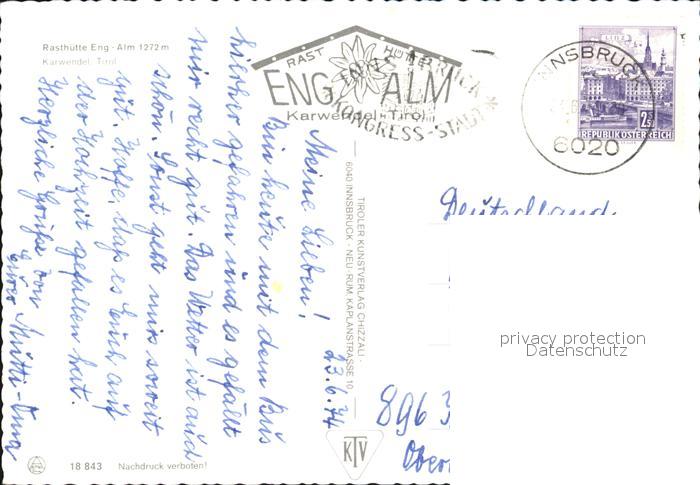 Rasthütte Eng - Alm 1272 m
Karwendel, Tirol
RAST HÜTTE
ENG ALM
Karwendel-Tirol
INNSBRUCK
*KONGRESS-STADT*
INNSBRUCK
6020
LINZ
2.50
REPUBLIK ÖSTERREICH
23.6.74
Meine Lieben!
Bin heute mit dem Bus
hierher gefahren und es gefällt
mir recht gut. Das Wetter ist auch
schön. Sonst geht mir soweit
gut. Hoffe, daß es Euch auf
der Hochzeit gefallen hat.
Herzliche Grüße von
Eurer Mutti-Oma
TIROLER KUNSTVERLAG CHIZZALI ·
6040 INNSBRUCK - NEU RUM, KAPLANSTRASSE 10
KTV
Deutschland
privacy protection
Datenschutz
896
Ober
18 843 Nachdruck verboten!